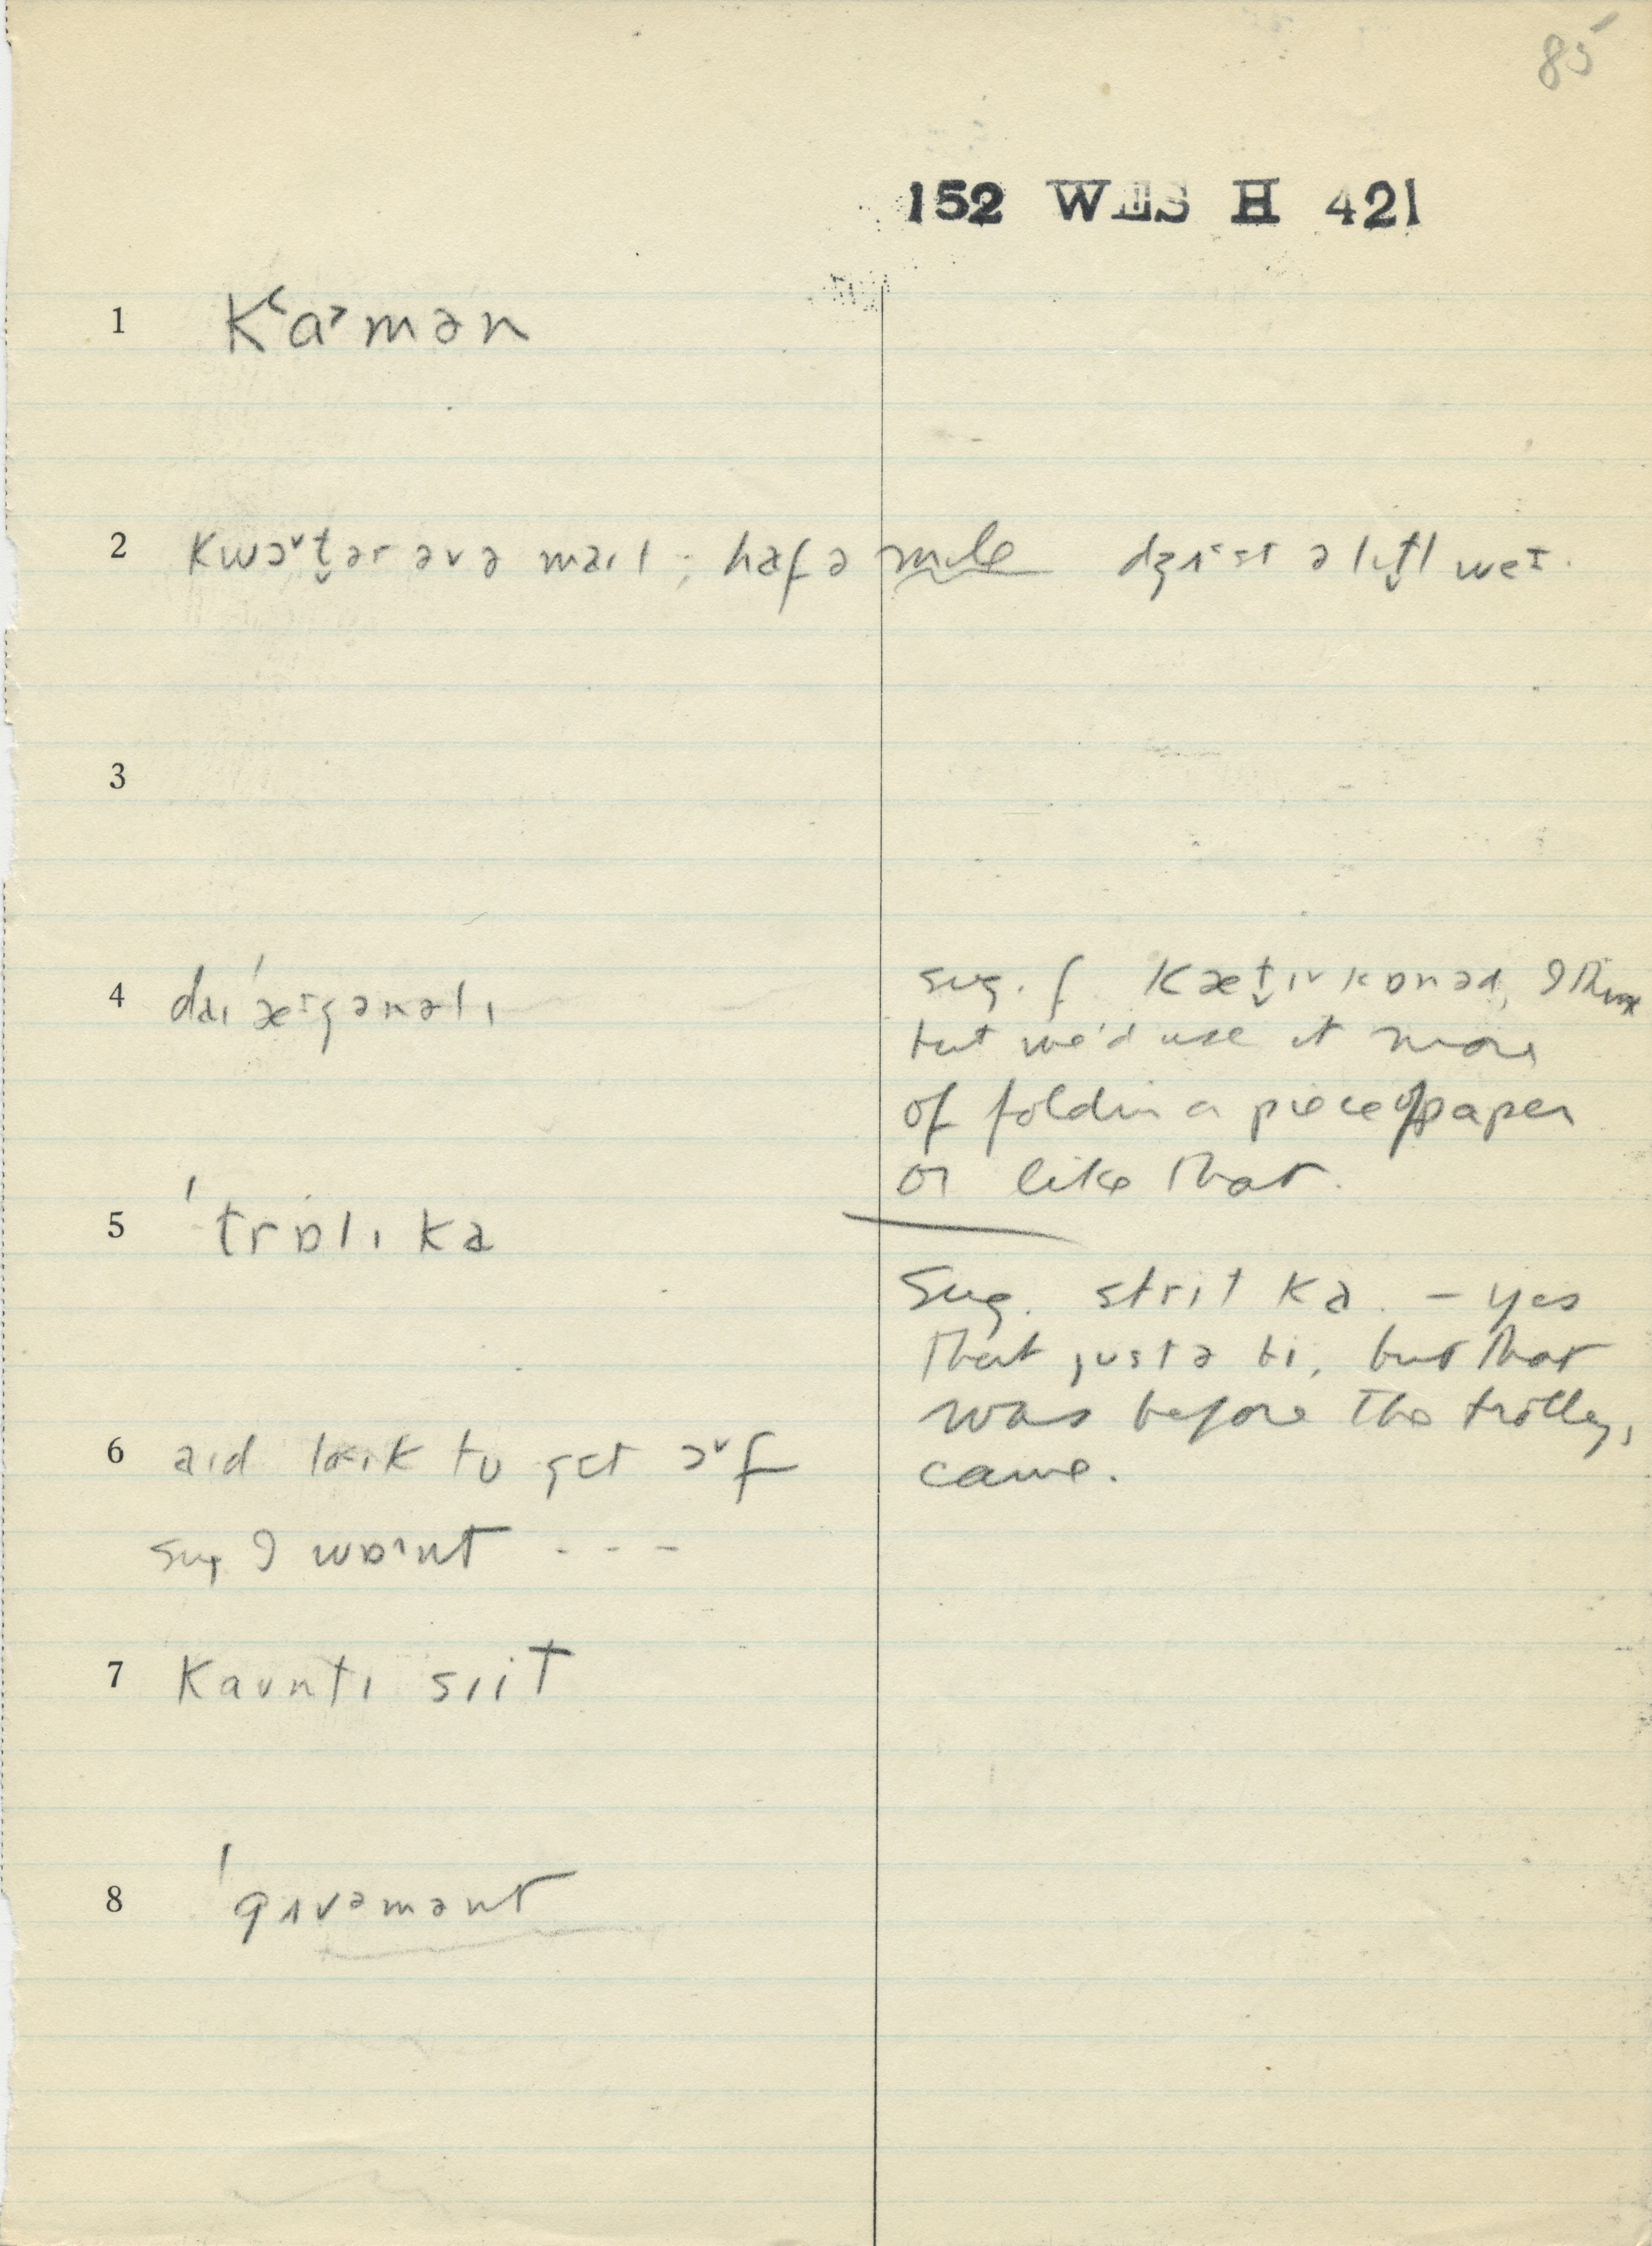 85
152 WES H 421
1 kʽa˃mən
2 kwɔ˅t̬ər əvə maɪl; hæf ə mile dʒʌ˂st ə lɪt̬l weɪ.
3
4 daɪˈægənəlɪ
sug. f kæt̬ɪ kɒnəd, I think
but we'd use it more
of foldin a piece of paper
or like that.
5 ˈtrɒlɪ ka
Sug. strit ka. – yes
that justə bi, but that
was before the trolley,
came.
6 aɪd laɪk tu get ɔ˅f
sug I wɒ˄nt - - -
7 kaʊntɪ siit
8 ˈgʌvəmənt